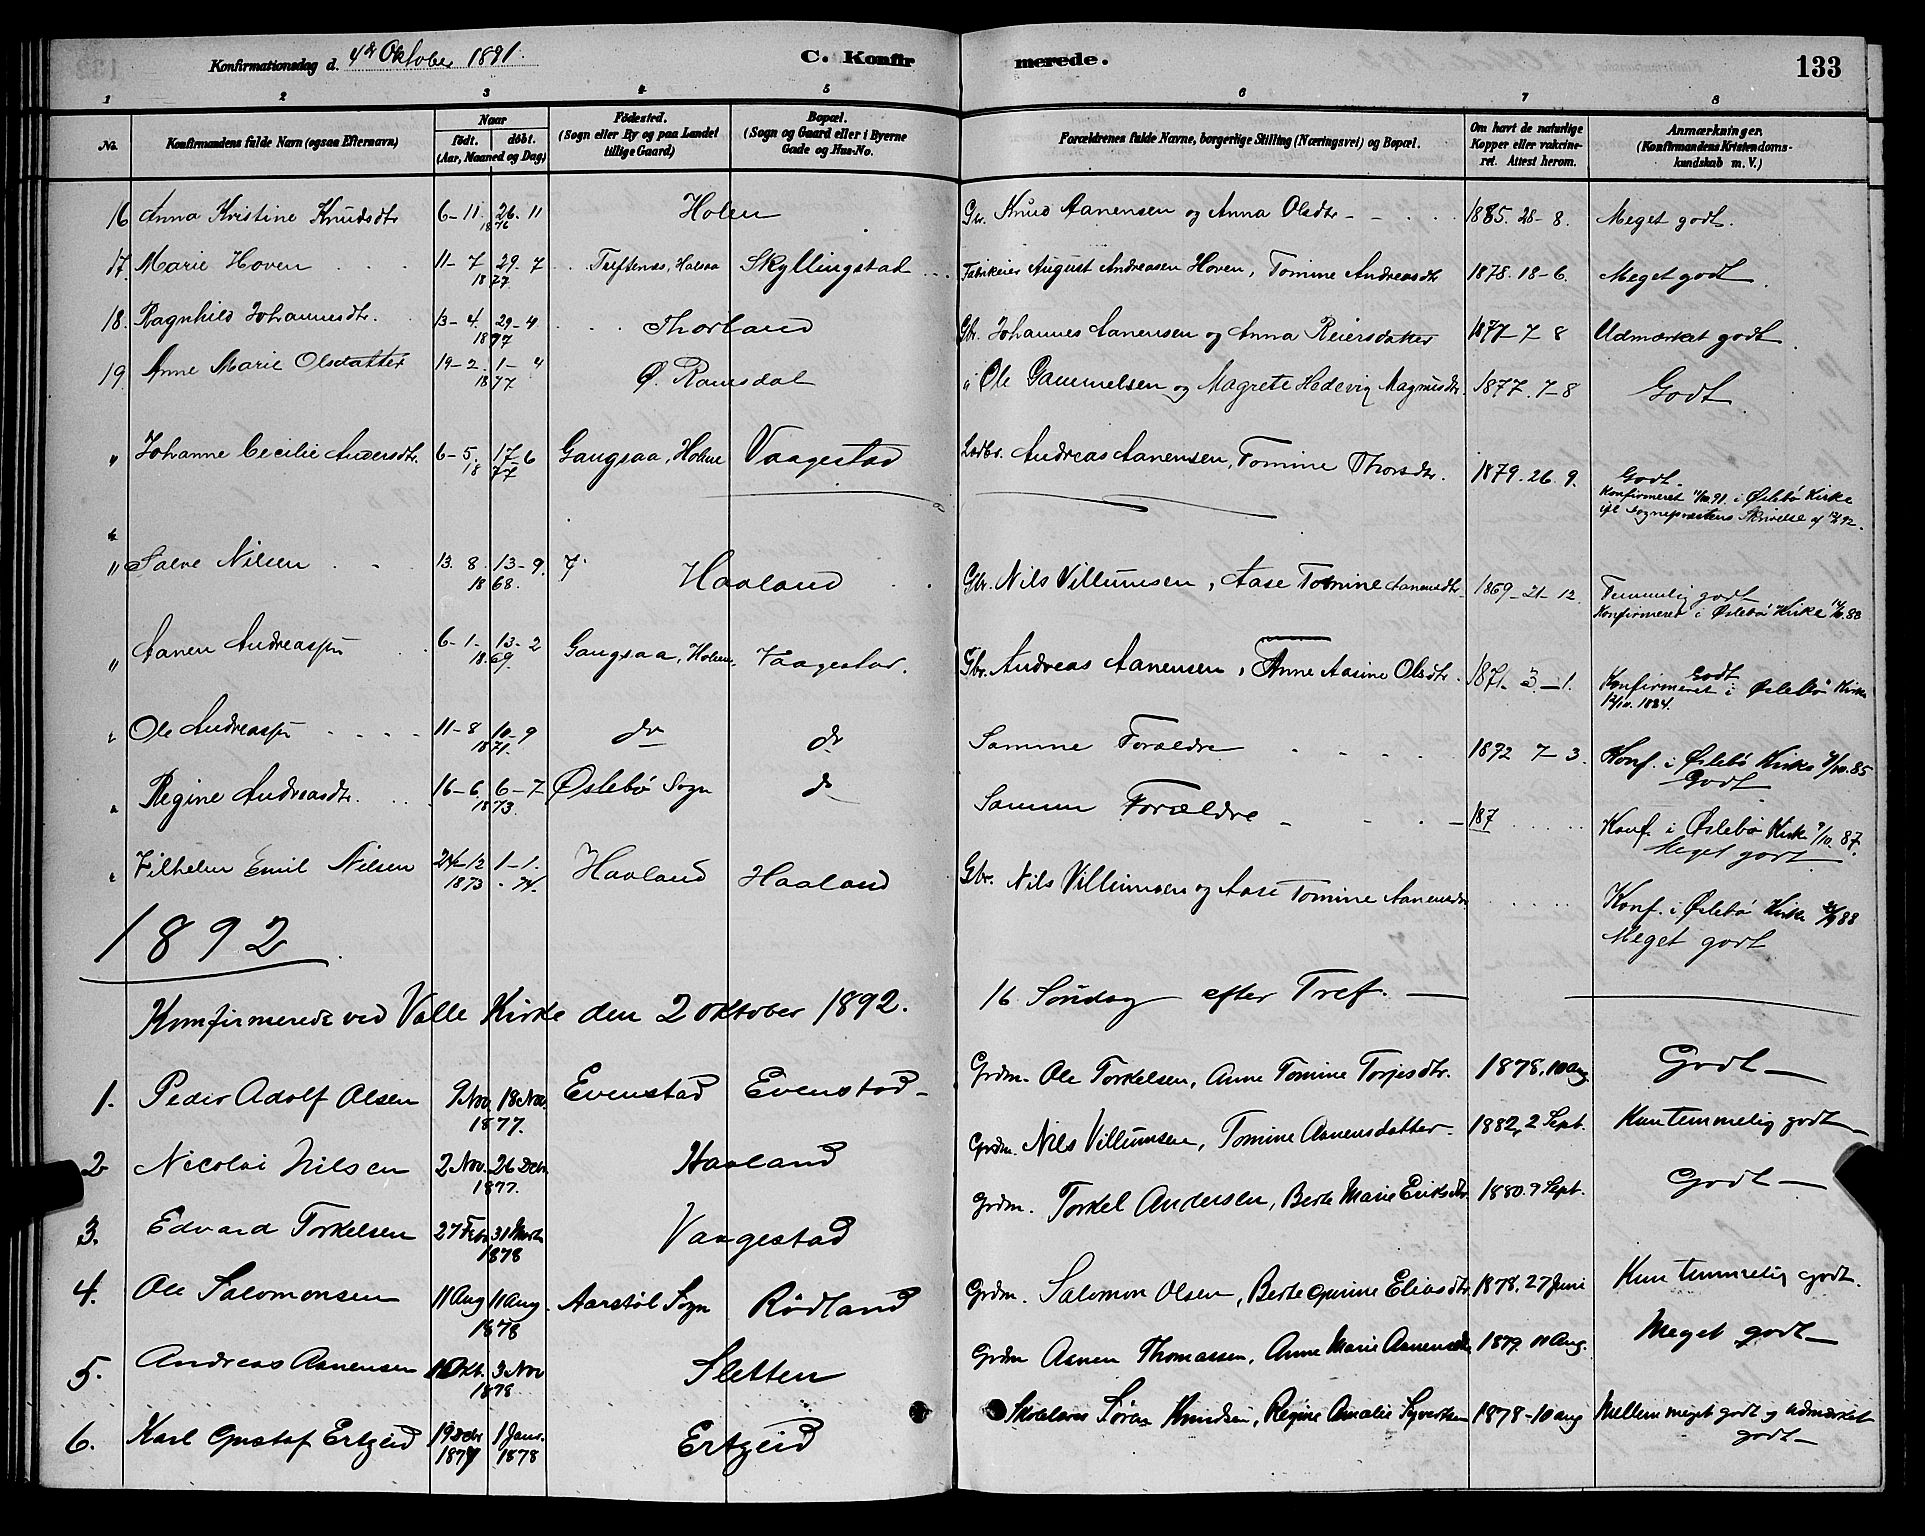 Konfirmationsdag d. 4de Oktober 1891.
C. Konfirmerede.
133
1 2 3 4 5 6 7 8
No. Konfirmandens fulde Navn (ogsaa Efternavn) Naar født. døbt. (Aar, Maaned og Dag) Fødested. (Sogn eller By og paa Landet tillige Gaard) Bopæl. (Sogn og Gaard eller i Byerne Gade og Hus-No. Forældrenes fulde Navne, borgerlige Stilling (Næringsvei) og Bopæl. Om havt de naturlige Kopper eller vakcineret. Attest herom. Anmærkninger. (Konfirmandens Kristendomskundskab m. V.)
16 Anna Kristine Knudsdtr 6-11. 26. 11 1876 Holen Gbr. Knud Aanensen og Anna Olsdtr 1885. 28-8. Meget godt.
17. Marie Hoven 11-7 29. 7 1877 Halsaa Skyllingstad August Andreasen Hoven, Tomine Andreasdtr 1878. 18-6. Meget godt.
18. Ragnhild Johannesdtr. 13-4. 29-4 1877 Thorland Gbr. Johannes Aanensen og Anna Reiersdatter 1877-7-8 Udmærket godt.
19. Anne Marie Olsdatter 19-2. 1-4 1877 Ø. Ramsdal " Ole Gammelsen og Magrete Hedevig Magnusdtr. 1877. 7-8 Godt.
" Johanne Cecilie Andersdtr. 6-5. 17-6 1877 Gangsaa, Holme Vaagestad Andreas Aanensen, Tomine Thorsdtr. 1879. 26. 9. Godt.
Konfirmeret 91. i Øslebø Kirke
ifl. Sognepræstens Skrivelse af 92.
" Salve Nilsen 13. 8. 13-9. 1868. Haaland Gbr. Nils Villumsen, Aase Tomine Aanensdtr. 1869-21-12. Temmelig godt
Konfirmeret i Øslebø Kirke
" Aanen Andreassen 6-1. 13-2 1869. Gangsaa, Holme. Vaagestad. Gbr. Andreas Aanensen, Anne Aasine Olsdtr. 1871-3-1. Godt
Konfirmeret i Øslebø Kirke
1884.
" Ole Andreassen 11-8 10-9 1871. do do Samme Forældre 1872 7-3. Konf. i Øslebø Kirke /10.85
Godt
" Regine Andreasdtr. 16-6. 6-7 1873. Øslebø Sogn do Samme Forældre 187 Konf. i Øslebø Kirke 9/10.87.
Meget godt
" Vilhelm Emil Nilsen 24-12 1-1. 1873 . 74. Haaland Haaland Gbr. Nils Villumsen og Aase Tomine Aanensdtr. Konf. i Øslebø Kirke 88
Meget godt
1892.
Konfirmerede ved Valle Kirke den 2 oktober 1892. 16 Søndag efter Tref.
1. Peder Adolf Olsen 9 Nov. 18 Nov. 1877. Evenstad Evenstad Grdm. Ole Torkelsen, Anne Tomine Torjesdtr. 1878, 10 aug. Godt
2 Nicolai Nilsen 2 Nov. 26 Debr 1877. Haaland Grdm. Nils Villumsen, Tomine Aanensdatter 1882, 2 Sept. Kun temmelig godt
3. Edvard Torkelsen 27 Febr 31 Marts 1878 Vaagestad Grdm. Torkel Andersen, Berte Marie Eriksdtr. 1880. 9 Sept. Godt
4. Ole Salomonsen 11 Aug 11 Aug. 1878 Aarstøl Sogn Rødland Grdm. Salomon Olsen, Berte Gurine Eliasdtr. 1878, 27 Juni Kun temmelig godt.
5. Andreas Aanensen Okt. 3 Nov 1878 Sletten Grdm Aanen Thomassen, Anne Marie Aanensdtr 1879. 11 Aug. Meget godt
6. Karl Gustaf Ertzeid 19 Debr 1 Janr. 1877 1878 Ertzeid Skolelærer Søren Knudsen, Regine Amalie Syvertsen 1878-10 aug Mellem meget godt og udmærket
godt